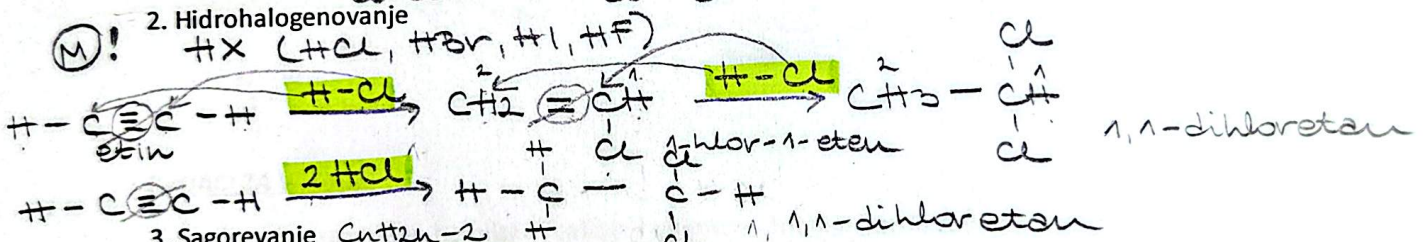 2. Hidrohalogenovanje
M! HX (HCl, HBr, HI, HF)
H-C≡C-H H-Cl CH2=CH Cl H-Cl CH3-CH Cl Cl
2 1 2 1
etin 1-hlor-1-eten 1,1-dihloretan
H-C≡C-H 2 HCl H-C-C-H H H Cl Cl 1,1,1-dihloretan
3. Sagorevanje CnH2n-2